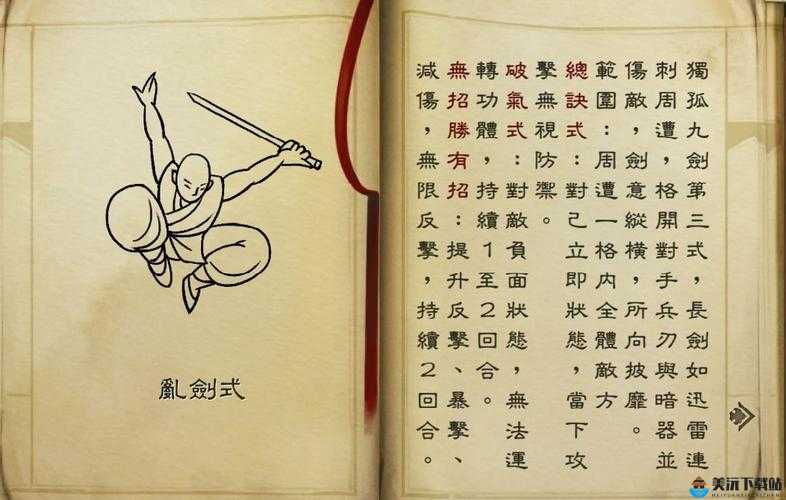 獨孤九劍第三式，長劍如迅雷連
刺周遭，格開對手兵刃與暗器並
傷敵，劍意縱橫，所向披靡。
範圍：周遭一格內全體敵方
總訣式：對己立即狀態，當下攻
擊無視防禦。
破氣式：對敵負面狀態，無法運
轉功體，持續1至2回合。
無招勝有招：提升反擊、暴擊、
減傷，無限反擊，持續2回合。
亂劍式
美沅下载站